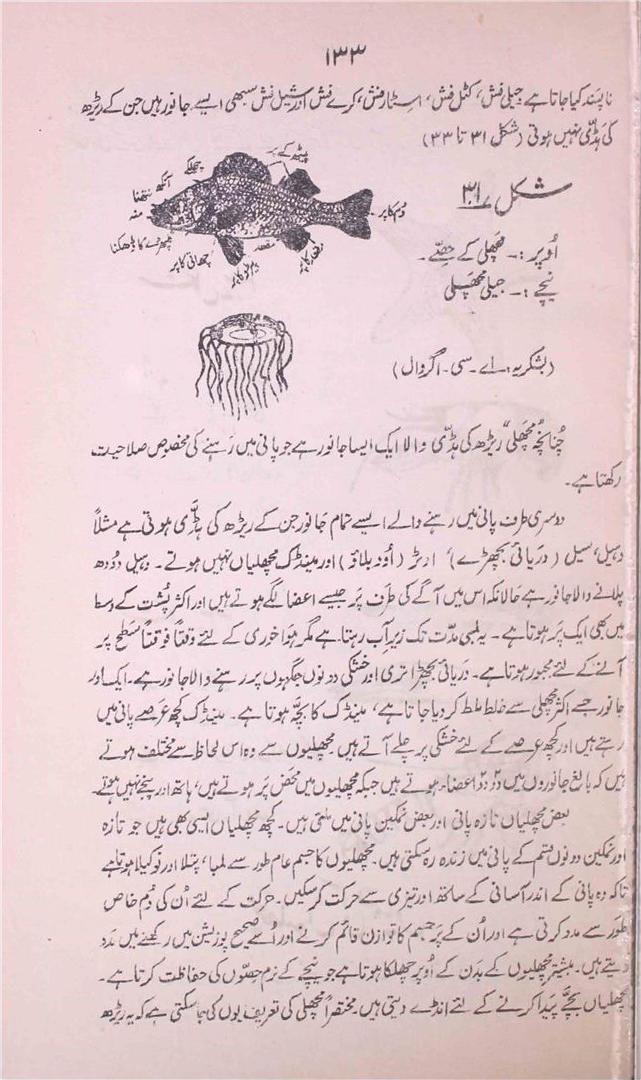 ۱۳۳
ناپسند کیا جاتا ہے جیلی فش، کٹل فش، اسٹار فش، کرے فش اور شیل فش سبھی ایسے جانور ہیں جن کے ریڑھ
کی ہڈی نہیں ہوتی (شکل ۳۱ تا ۳۳)
پیٹھ کے پر
چھلکے
آنکھ
نتھنا
منہ
دُم کا پر
پھپھڑے کا ڈھکنا
چھاتی کا پر
مقعد
شکل ۳۱
اُوپر :۔ مچھلی کے حصّے۔
نیچے :۔ جیلی مچھلی
(بشکریہ :۔ اے۔سی۔ اگروال)
چُنانچہ مچھلی "ریڑھ کی ہڈی والا ایک ایسا جانور ہے جو پانی میں رہنے کی مخصوص صلاحیت
رکھتا ہے۔
دوسری طرف پانی میں رہنے والے ایسے تمام جانور جن کے ریڑھ کی ہڈی ہوتی ہے مثلاً
وہیل، سیل (دریائی بچھڑے)، ارٹر (اُود بلاؤ) اور مینڈک مچھلیاں نہیں ہوتے۔ وہیل دُودھ
پلانے والا جانور ہے حالانکہ اس میں آگے کی طرف پَر جیسے اعضا لگے ہوتے ہیں اور اکثر پُشت کے وسط
میں بھی ایک پَر ہوتا ہے۔ یہ لمبی مدّت تک زیرِ آب رہتا ہے مگر ہوا خوری کے لئے وقتاً فوقتاً سطح پر
آنے کے لئے مجبور ہوتا ہے۔ دریائی بچھڑا تری اور خشکی دونوں جگہوں پر رہنے والا جانور ہے۔ ایک اور
جانور جسے اکثر مچھلی سے خلط ملط کر دیا جاتا ہے، مینڈک کا بچّہ ہوتا ہے۔ مینڈک کچھ عرصے پانی میں
رہتے ہیں اور کچھ عرصے کے لئے خشکی پر چلے آتے ہیں۔ مچھلیوں سے وہ اس لحاظ سے مختلف ہوتے
ہیں کہ بالغ جانوروں میں دو دو اعضاء ہوتے ہیں جبکہ مچھلیوں میں محض پَر ہوتے ہیں، ہاتھ اور پنجے نہیں ہوتے۔
بعض مچھلیاں تازہ پانی اور بعض نمکین پانی میں ملتی ہیں۔ کچھ مچھلیاں ایسی بھی ہیں جو تازہ
اور نمکین دونوں قسم کے پانی میں زندہ رہ سکتی ہیں۔ مچھلیوں کا جسم عام طور سے لمبا، پتلا اور نوکیلا ہوتا ہے
تاکہ وہ پانی کے اندر آسانی کے ساتھ اور تیزی سے حرکت کر سکیں۔ حرکت کے لئے اُن کی دُم خاص
طور سے مدد کرتی ہے اور اُن کے پَر جسم کا توازن قائم کرنے اور اُسے صحیح پوزیشن میں رکھنے میں مدد
دیتے ہیں۔ بیشتر مچھلیوں کے بدن کے اُوپر چھلکا ہوتا ہے جو نیچے کے نرم حصّوں کی حفاظت کرتا ہے۔
مچھلیاں بچّے پیدا کرنے کے لئے انڈے دیتی ہیں۔ مختصراً مچھلی کی تعریف یوں کی جا سکتی ہے کہ یہ ریڑھ